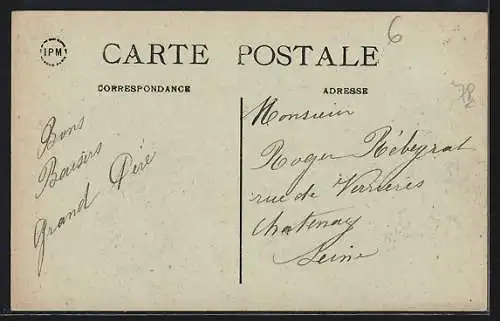 IPM
6
CARTE POSTALE
CORRESPONDANCE
ADRESSE
Bons
Baisers
Grand Père
Monsieur
Roger Rébeyrat
rue de Verrières
Chatenay
Seine